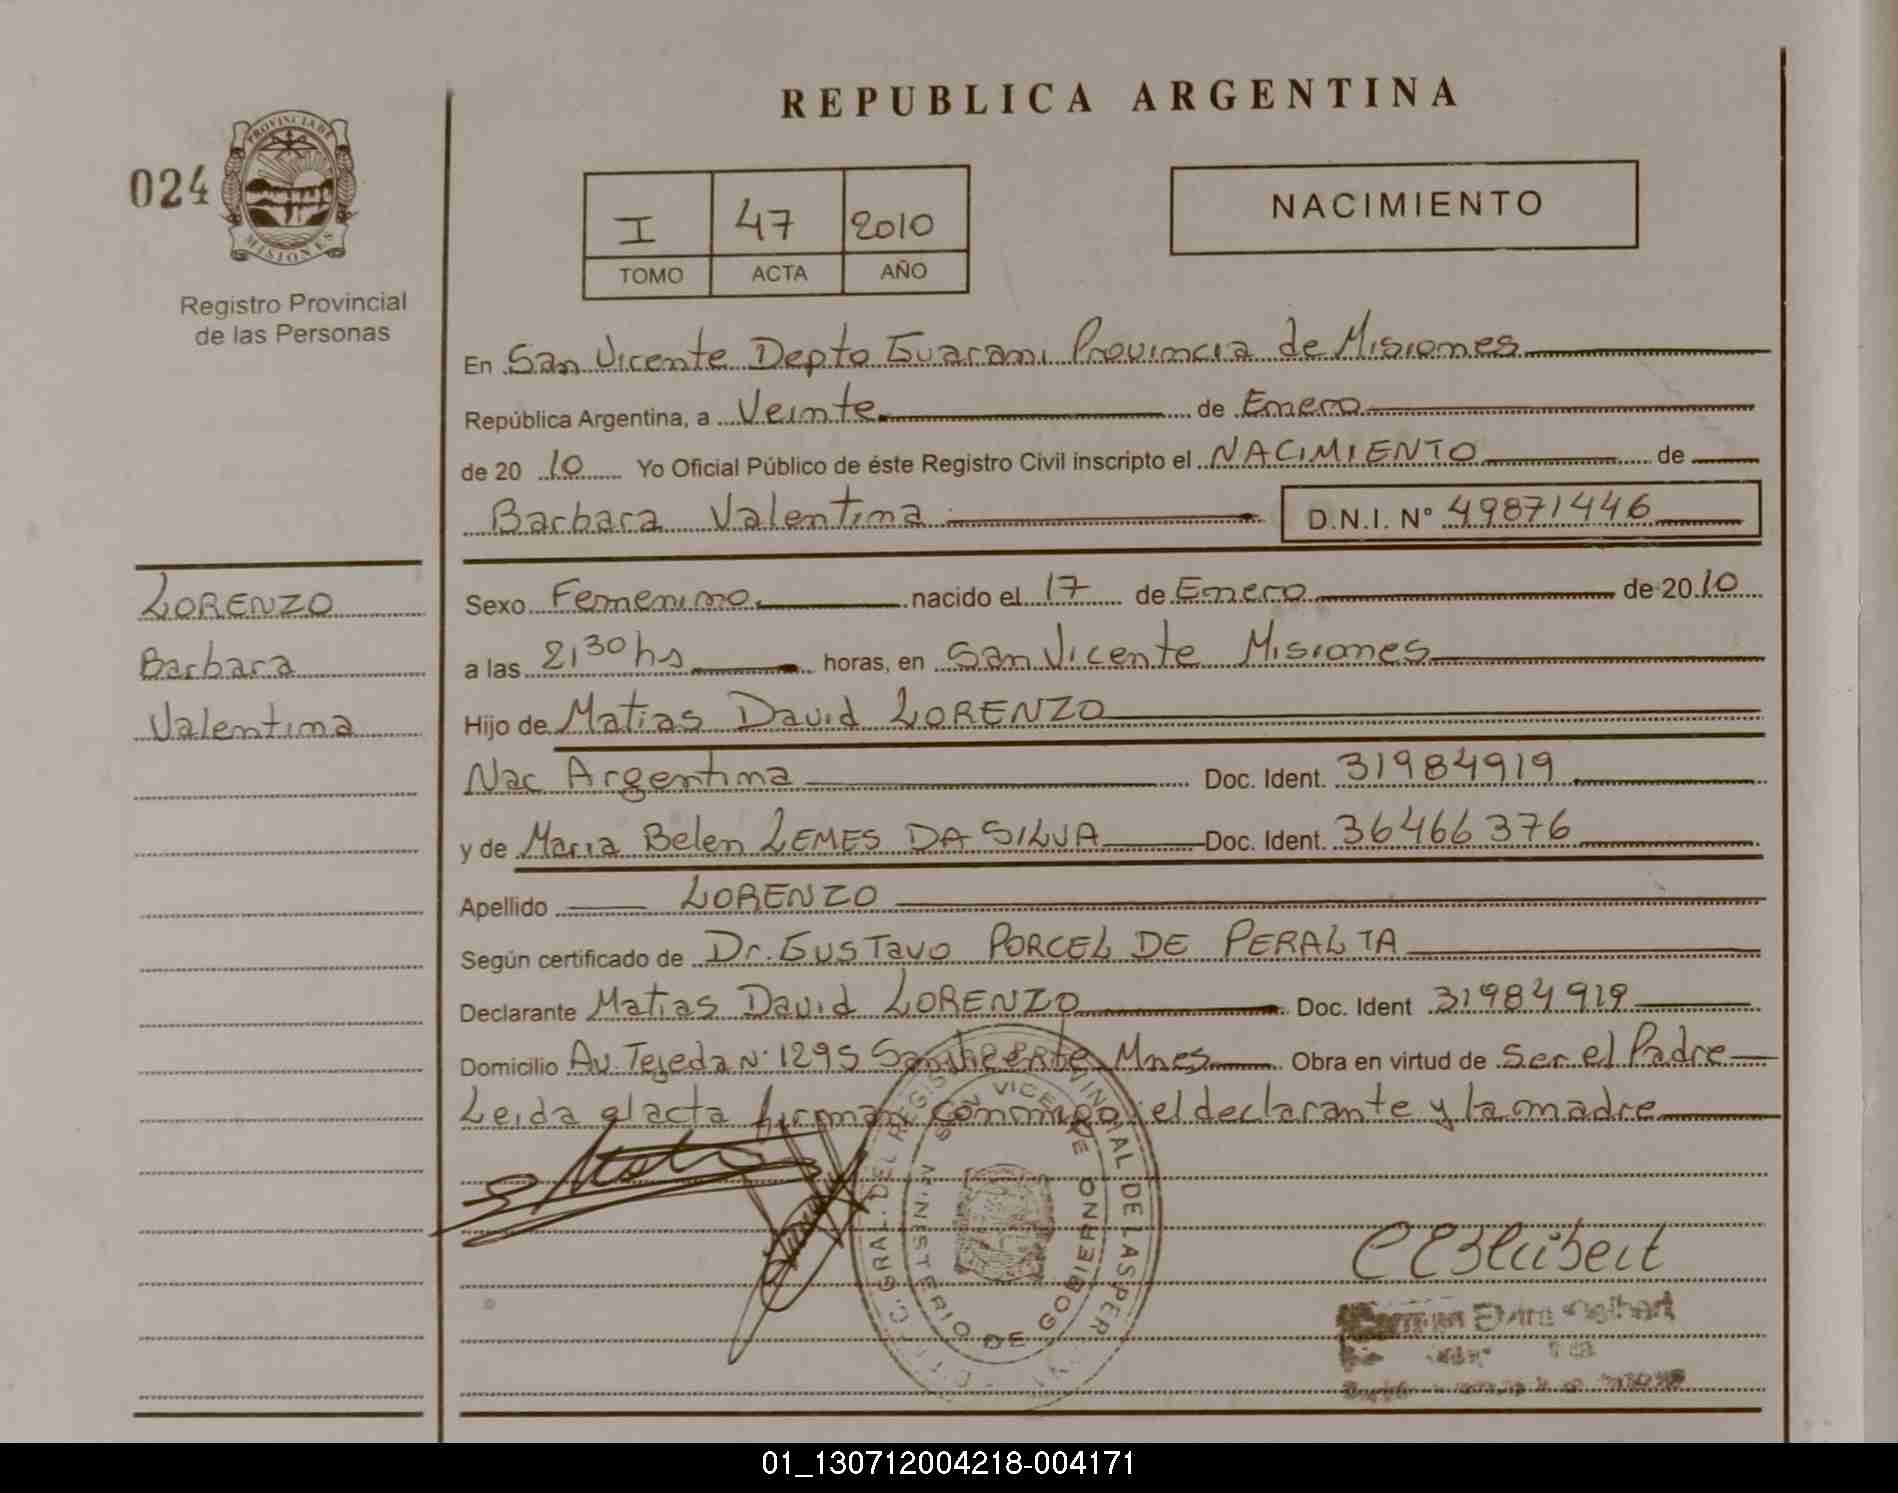 REPUBLICA ARGENTINA
024
PROVINCIA DE
MISIONES
Registro Provincial
de las Personas
I 47 2010
TOMO ACTA AÑO
NACIMIENTO
En San Vicente Depto Guarani Provincia de Misiones
República Argentina, a Veinte de Enero
de 20 10 Yo Oficial Público de éste Registro Civil inscripto el NACIMIENTO de
Barbara Valentina D.N.I. N° 49871446
LORENZO
Barbara
Valentina
Sexo Femenino nacido el 17 de Enero de 2010
a las 21,30 hs horas, en San Vicente Misiones
Hijo de Matias David LORENZO
Nac Argentina Doc. Ident. 31984919
y de Maria Belen LEMES DA SILVA Doc. Ident. 36466376
Apellido LORENZO
Según certificado de Dr. GUSTavo PORCEL DE PERALTA
Declarante Matias David LORENZO Doc. Ident 31984919
Domicilio Av. Tejeda N° 1295 San Vicente Mnes Obra en virtud de ser el Padre
Leida el acta firman conmigo, el declarante y la madre
SAN VICENTE
MINISTERIO DE GOBIERNO
01_130712004218-004171